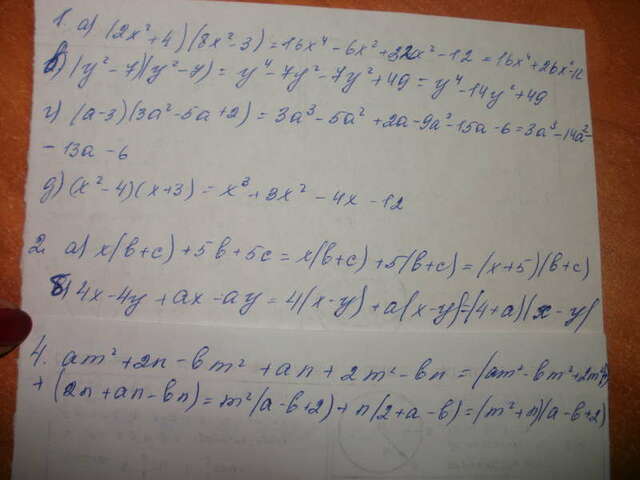 1. а) (2x²+4)(8x²-3) = 16x⁴ - 6x² + 32x² - 12 = 16x⁴ + 26x² - 12
в) (y²-7)(y²-7) = y⁴ - 7y² - 7y² + 49 = y⁴ - 14y² + 49
г) (a-3)(3a²-5a+2) = 3a³ - 5a² + 2a - 9a² - 15a - 6 = 3a³ - 14a² -
- 13a - 6
д) (x²-4)(x+3) = x³ + 3x² - 4x - 12
2. а) x(b+c) + 5b + 5c = x(b+c) + 5(b+c) = (x+5)(b+c)
б) 4x - 4y + ax - ay = 4(x-y) + a(x-y) = (4+a)(x-y)
4. am² + 2n - bm² + an + 2m² - bn = (am² - bm² + 2m²)
+ (2n + an - bn) = m²(a-b+2) + n(2+a-b) = (m²+n)(a-b+2)